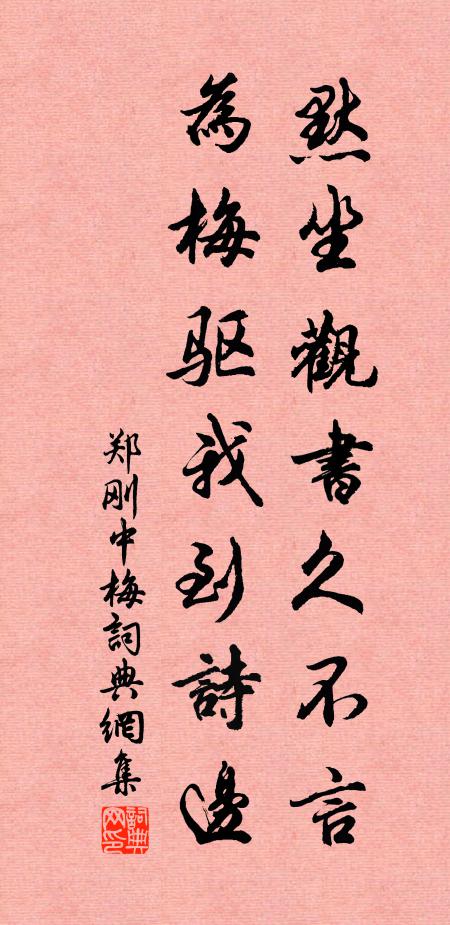 默坐觀書久不言
為梅驱我到詩邊
郑刚中梅詞典網集
詞典网印